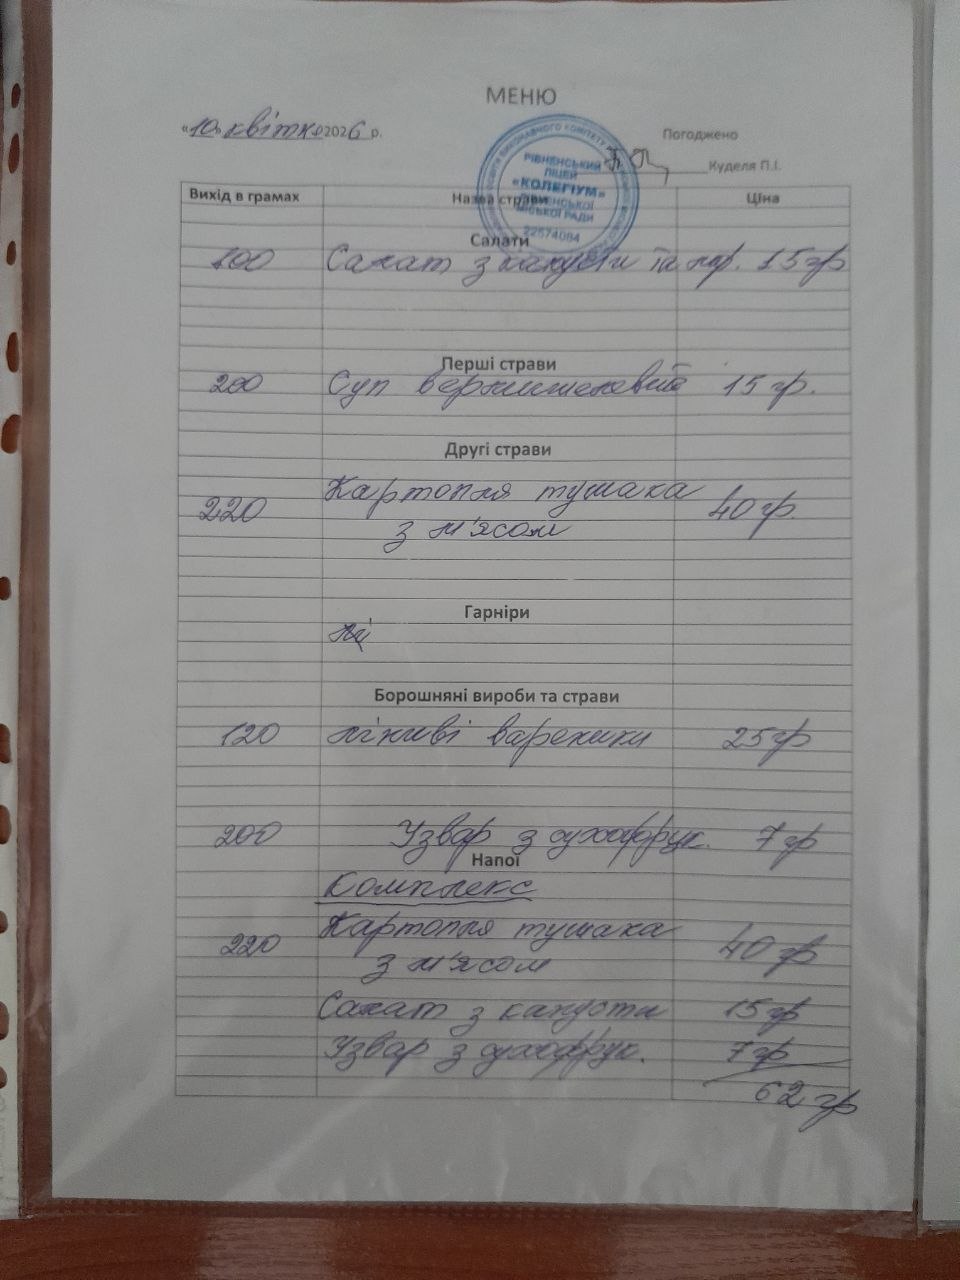 МЕНЮ
«10» квітня 2026 р.
Погоджено
Куделя П.І.
РІВНЕНСЬКИЙ
ЛІЦЕЙ
«КОЛЕГІУМ»
РІВНЕНСЬКОЇ
МІСЬКОЇ РАДИ
22574084
Вихід в грамах Назва страви Ціна
Салати
100 Салат з капусти та 15 гр
Перші страви
200 Суп вермишелевий 15 гр.
Другі страви
Картопля тушака
220 40 гр
з м'ясом
Гарніри
Борошняні вироби та страви
120 ліниві вареники 25 гр
200 Узвар з сухофрук. 7 гр
Напої
Комплекс
Картопля тушака
220 40 гр
з м'ясом
Салат з капусти 15 гр
Узвар з сухофрук. 7 гр
62 гр